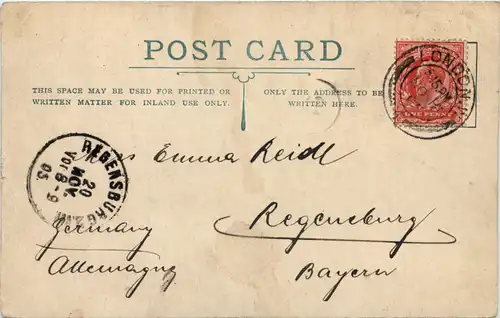 POST CARD
THIS SPACE MAY BE USED FOR PRINTED OR
WRITTEN MATTER FOR INLAND USE ONLY.
ONLY THE ADDRESS TO BE
WRITTEN HERE.
LONDON
ONE PENNY
REGENSBURG
20
NOV
Vor 8-9
05
Emma Reidl
Germany
Regensburg
Allemagne
Bayern